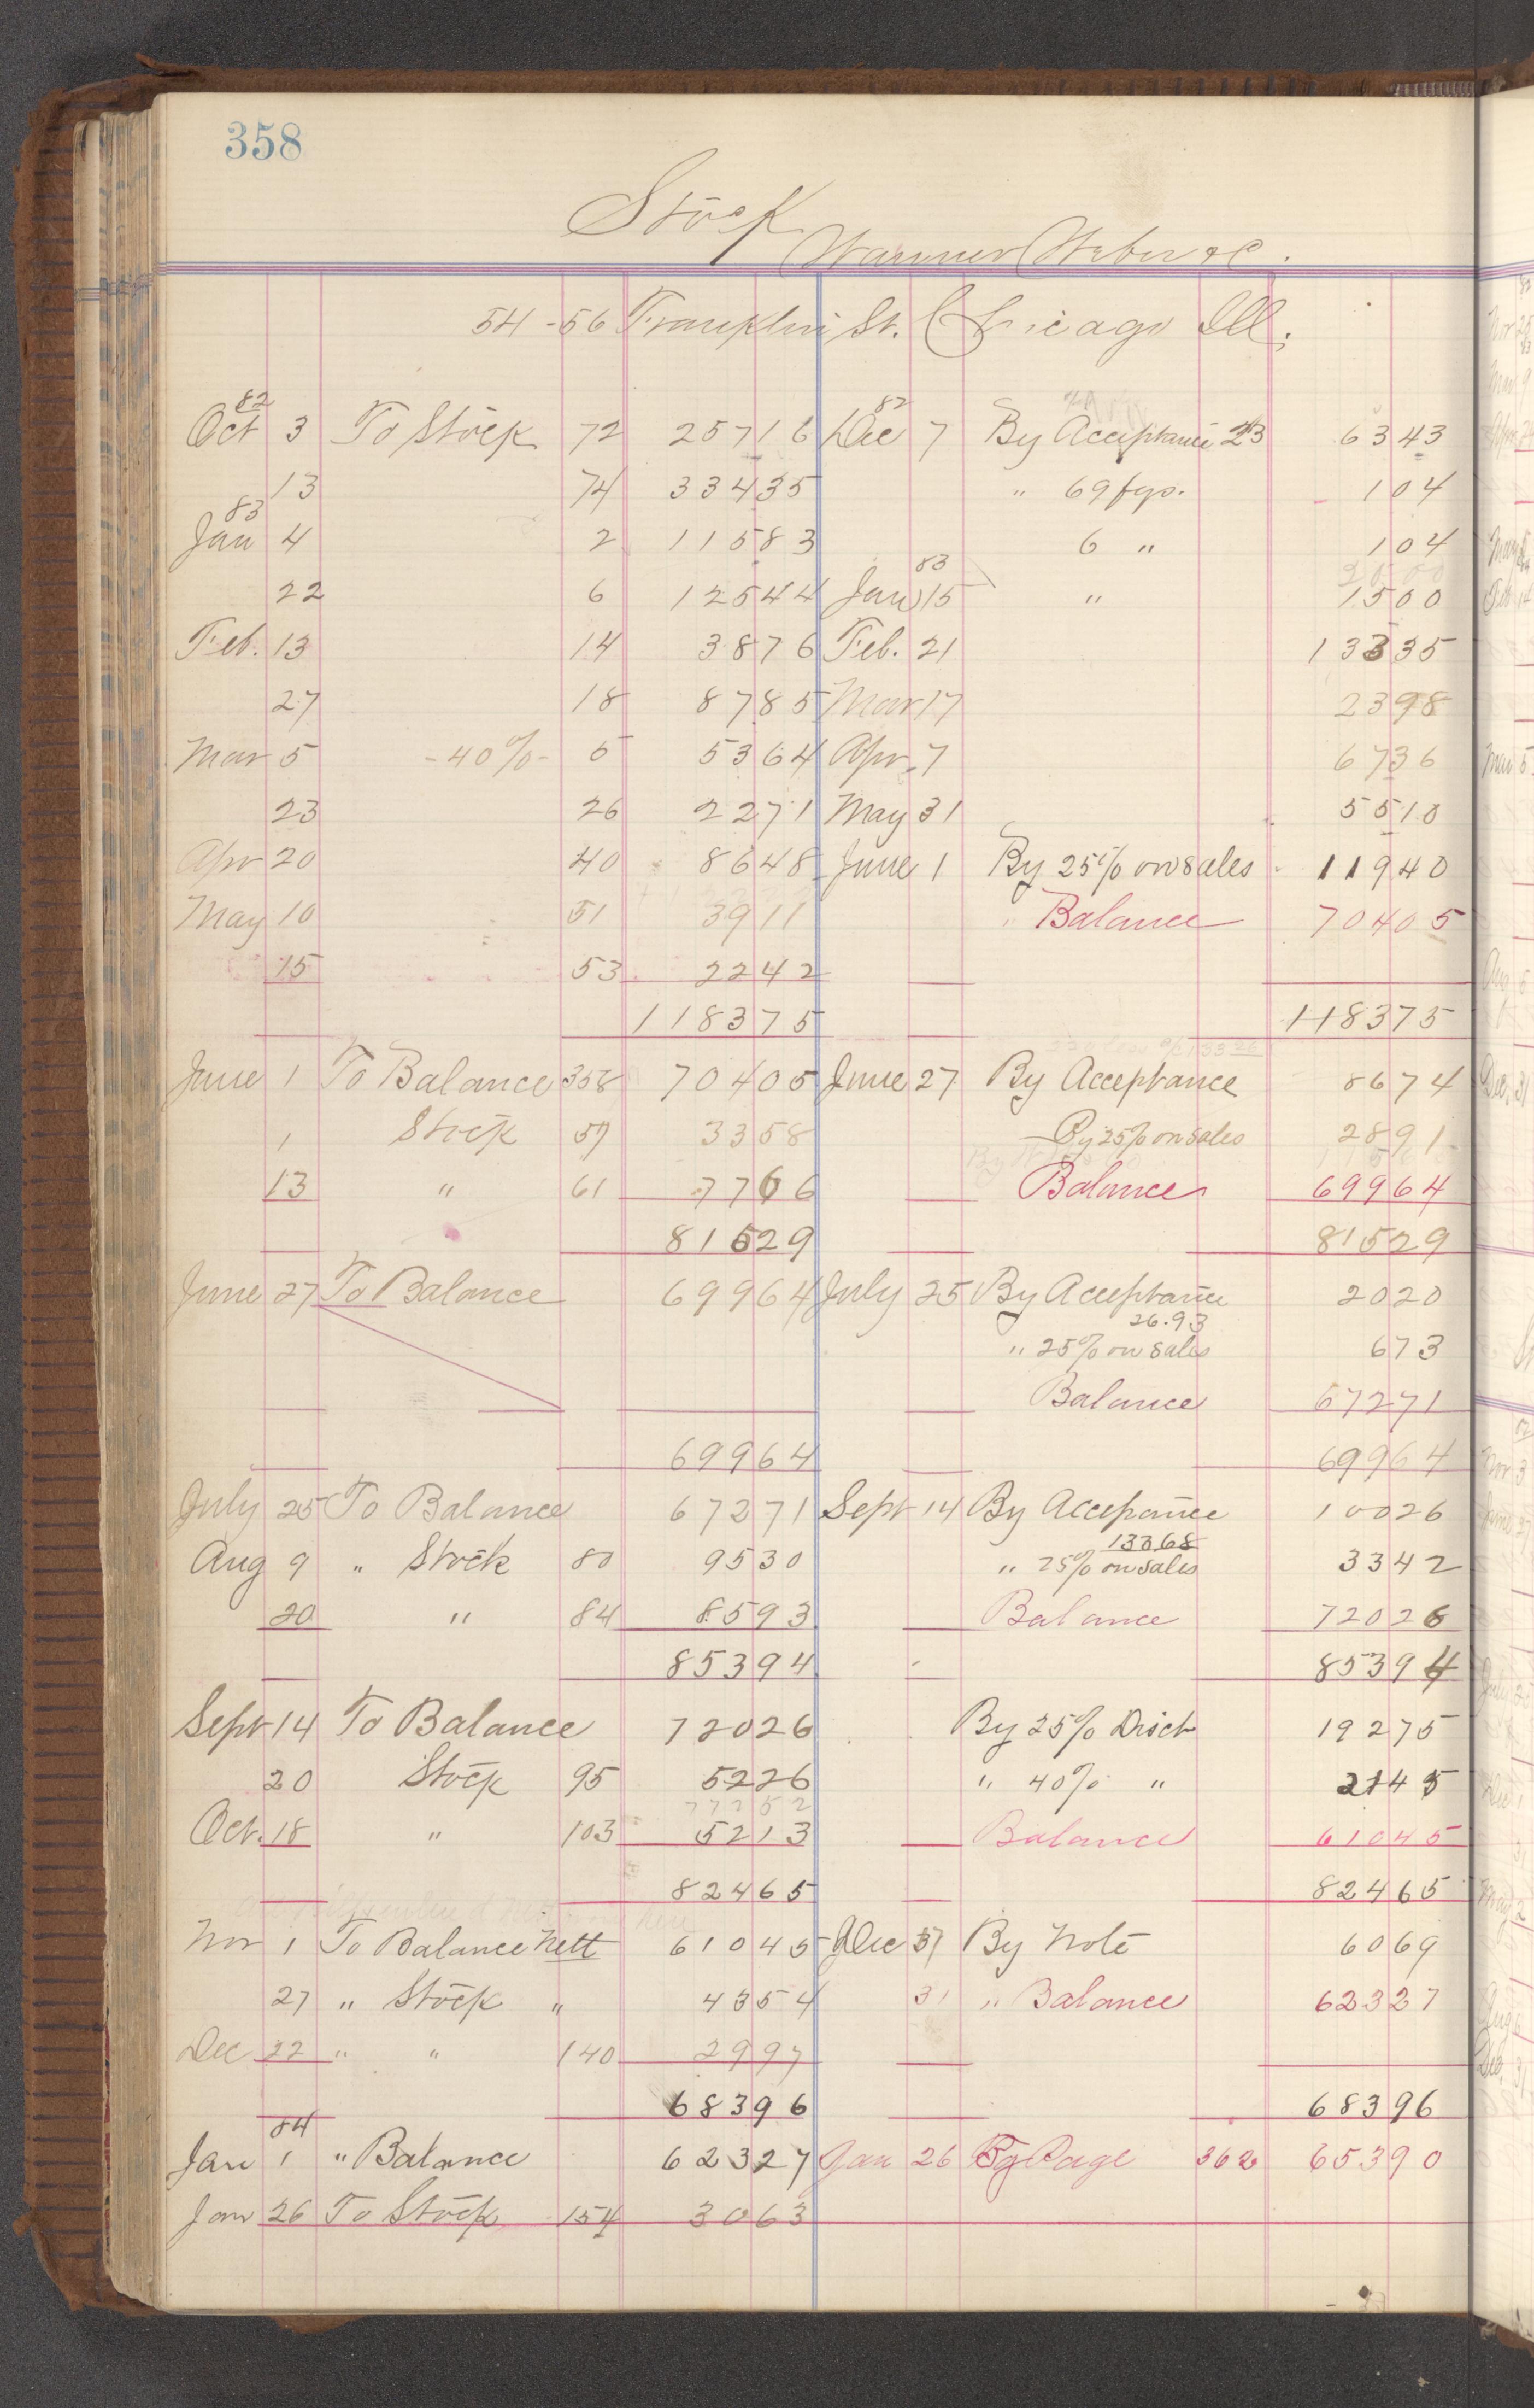 358
Stock
Warner Weber & C.
54-56 Franklin St. Chicago Ill.
82 82
Oct 3 To Stock 72 257 16 Dec 7 By Acceptance 23 63 43
13 74 334 35 " 69 fgs. 1 04
83
Jan 4 2 115 83 6 " 1 04
83
22 6 125 44 Jan 15 " 15 00
Feb. 13 14 38 76 Feb. 21 133 35
27 18 87 85 Mar 17 23 98
Mar 5 -40%- 5 53 64 Apr 7 67 36
23 26 22 71 May 31 55 10
Apr 20 40 86 48 June 1 By 25% on sales 119 40
May 10 51 39 11 " Balance 704 05
15 53 22 42
1183 75 1183 75
June 1 To Balance 358 704 05 June 27 By Acceptance 86 74
1 Stock 57 33 58 By 25% on sales 28 91
13 " 61 77 66 Balance 699 64
815 29 815 29
June 27 To Balance 699 64 July 25 By Acceptance 20 20
26.93
" 25% on sales 6 73
Balance 672 71
699 64 699 64
July 25 To Balance 672 71 Sept 14 By Accepance 100 26
133.68
Aug 9 " Stock 80 95 30 " 25% on sales 33 42
20 " 84 85 93 Balance 720 26
853 94 853 94
Sept 14 To Balance 720 26 By 25% Disct 192 75
20 Stock 95 52 26 " 40% " 21 45
772 52
Oct. 18 " 103 52 13 Balance 610 45
824 65 824 65
Nov 1 To Balance nett 610 45 Dec 31 By Note 60 69
27 " Stock " 43 54 31 " Balance 623 27
Dec 22 " " 140 29 97
683 96 683 96
84
Jan 1 " Balance 623 27 Jan 26 By Page 362 653 90
Jan 26 To Stock 154 30 63